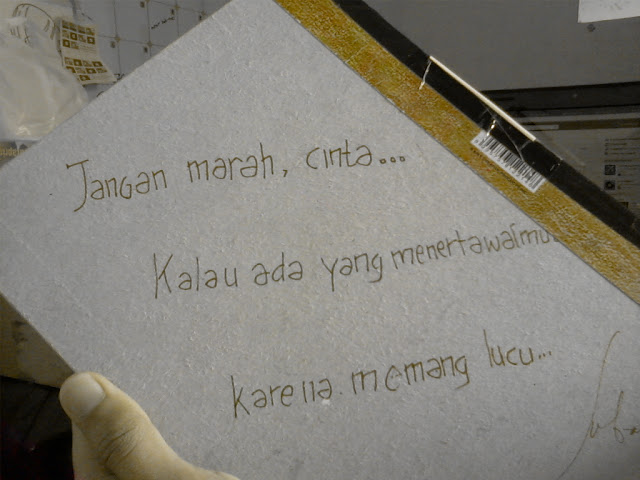 Jangan marah, cinta...
Kalau ada yang menertawaimu..
karena memang lucu...